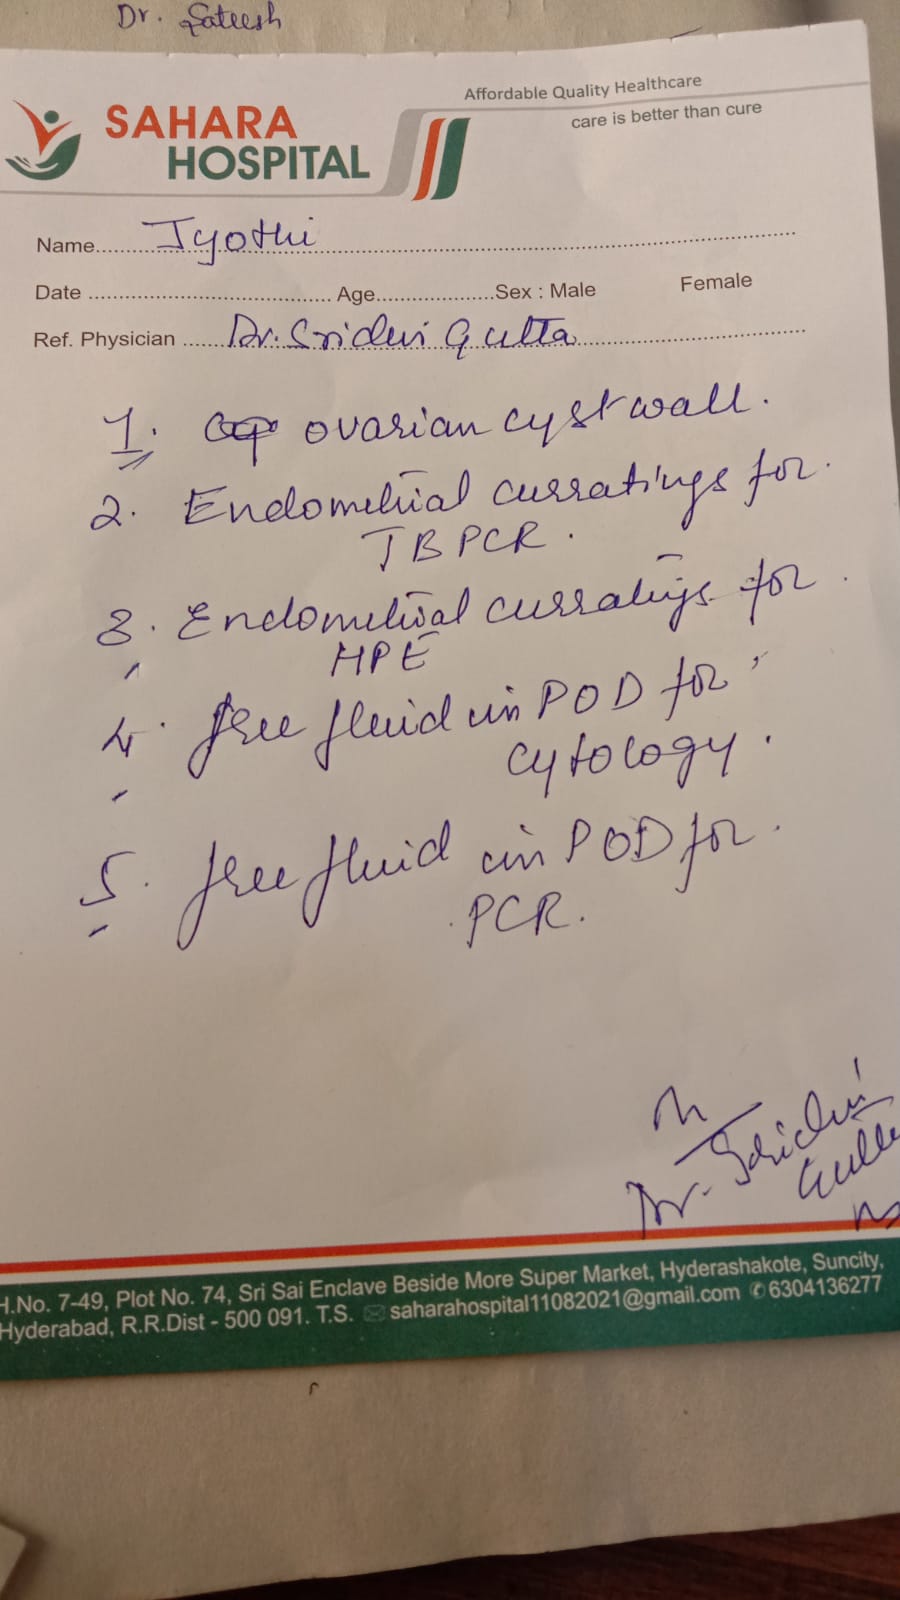 Dr. Sateesh
SAHARA
HOSPITAL
Affordable Quality Healthcare
care is better than cure
Name.......... Jyothi
Date .................... Age.................... Sex : Male Female
Ref. Physician ...... Dr. Sridevi Gutta
1. ovarian cyst wall.
2. Endometrial curratings for.
TB PCR.
3. Endometrial curratings for.
HPE
4. free fluid in POD for
cytology.
5. free fluid in POD for.
PCR.
Dr. Sridevi
Gutta
H.No. 7-49, Plot No. 74, Sri Sai Enclave Beside More Super Market, Hyderashakote, Suncity,
Hyderabad, R.R.Dist - 500 091. T.S. saharahospital11082021@gmail.com 6304136277